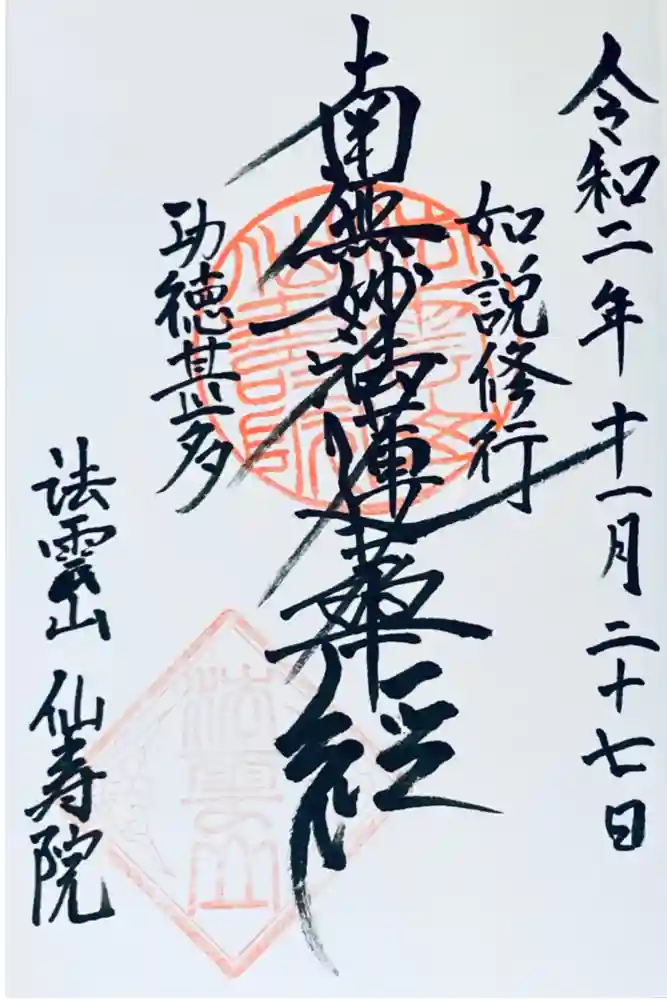 令和二年十一月二十七日
如説修行
南無妙法蓮華経
功徳甚多
法雲山 仙寿院
法雲山